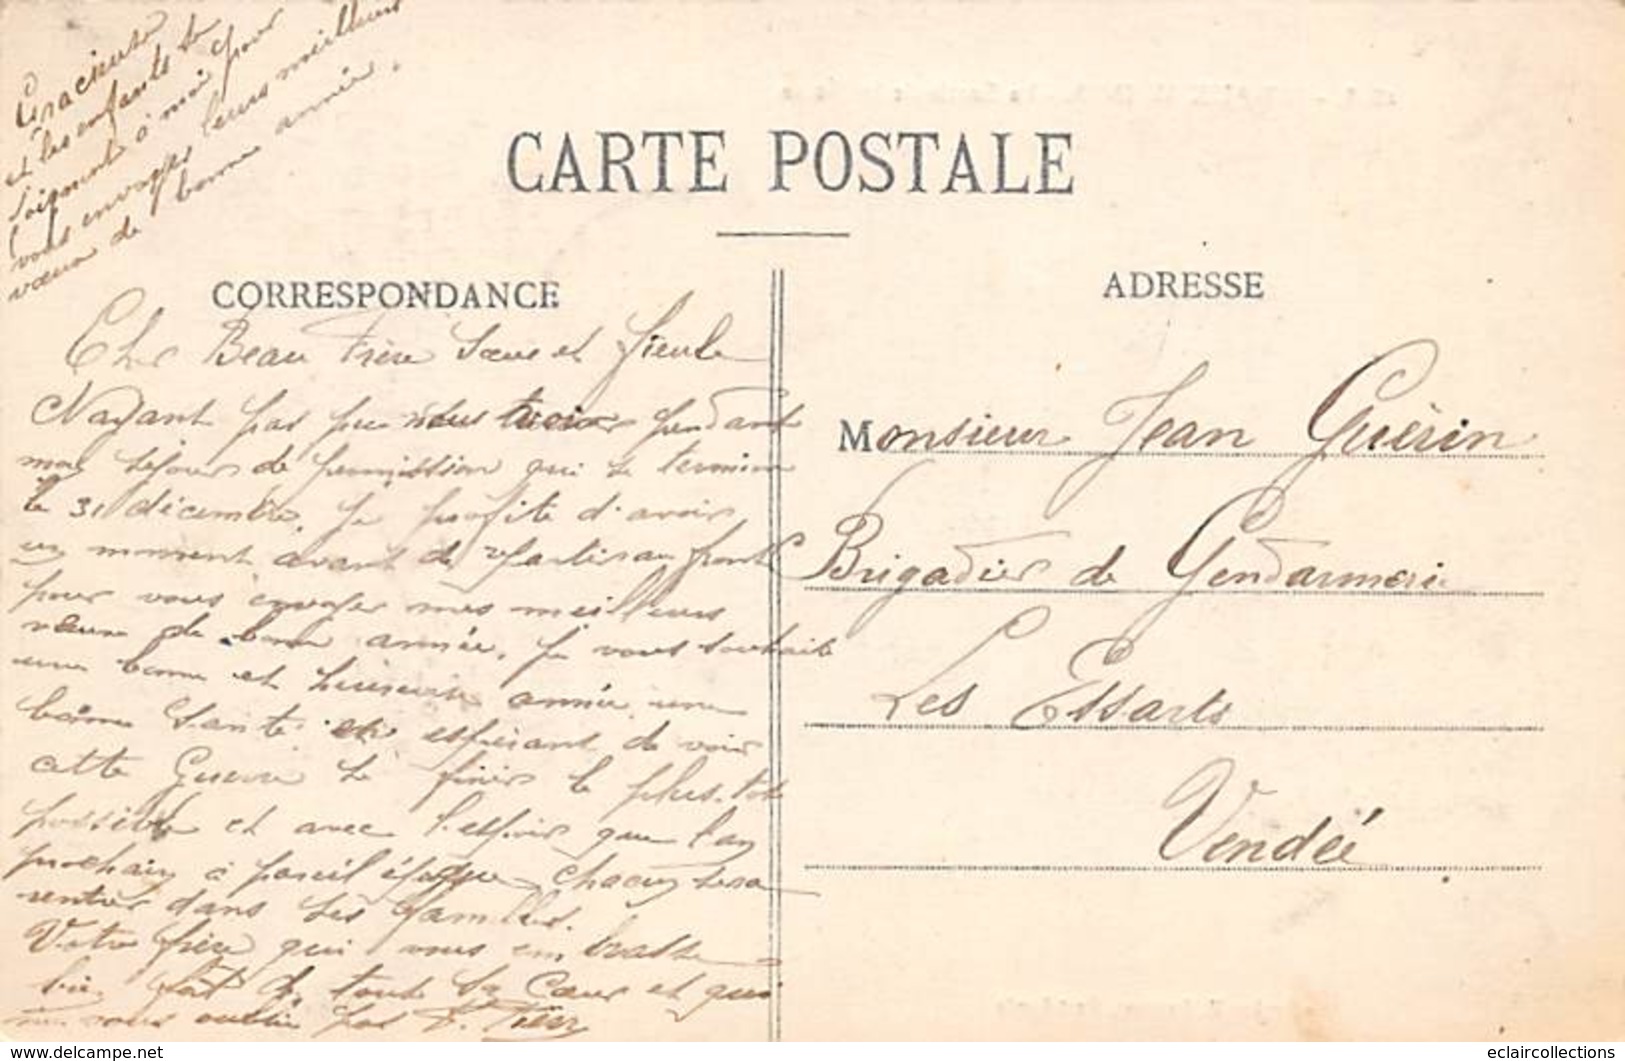 Gracieuse
et les enfants se
joignent à moi pour
vous envoyer leurs meilleurs
vœux de bonne année.
CARTE POSTALE
CORRESPONDANCE
Cher Beau Frère Sœur et
Nayant pas pu vous voir pendant
mon séjour de permission qui se termine
le 31 décembre, je profite d'avoir
un moment avant de repartir au front
pour vous envoyer mes meilleurs
vœux de bonne année. je vous souhaite
une bonne et heureuse année une
bonne Santé et espérant de voir
cette Guerre se finir le plus tôt
possible et avec l'espoir que l'an
prochain à pareil époque chacun sera
rentrer dans ses familles.
Votre frère qui vous embrasse
bien fort de tout son Cœur et qui
ne vous oublie pas
ADRESSE
Monsieur Jean Guérin
Brigadier de Gendarmerie
Les Essarts
Vendée
eclaircollections
https://www.delcampe.net
eclaircollections